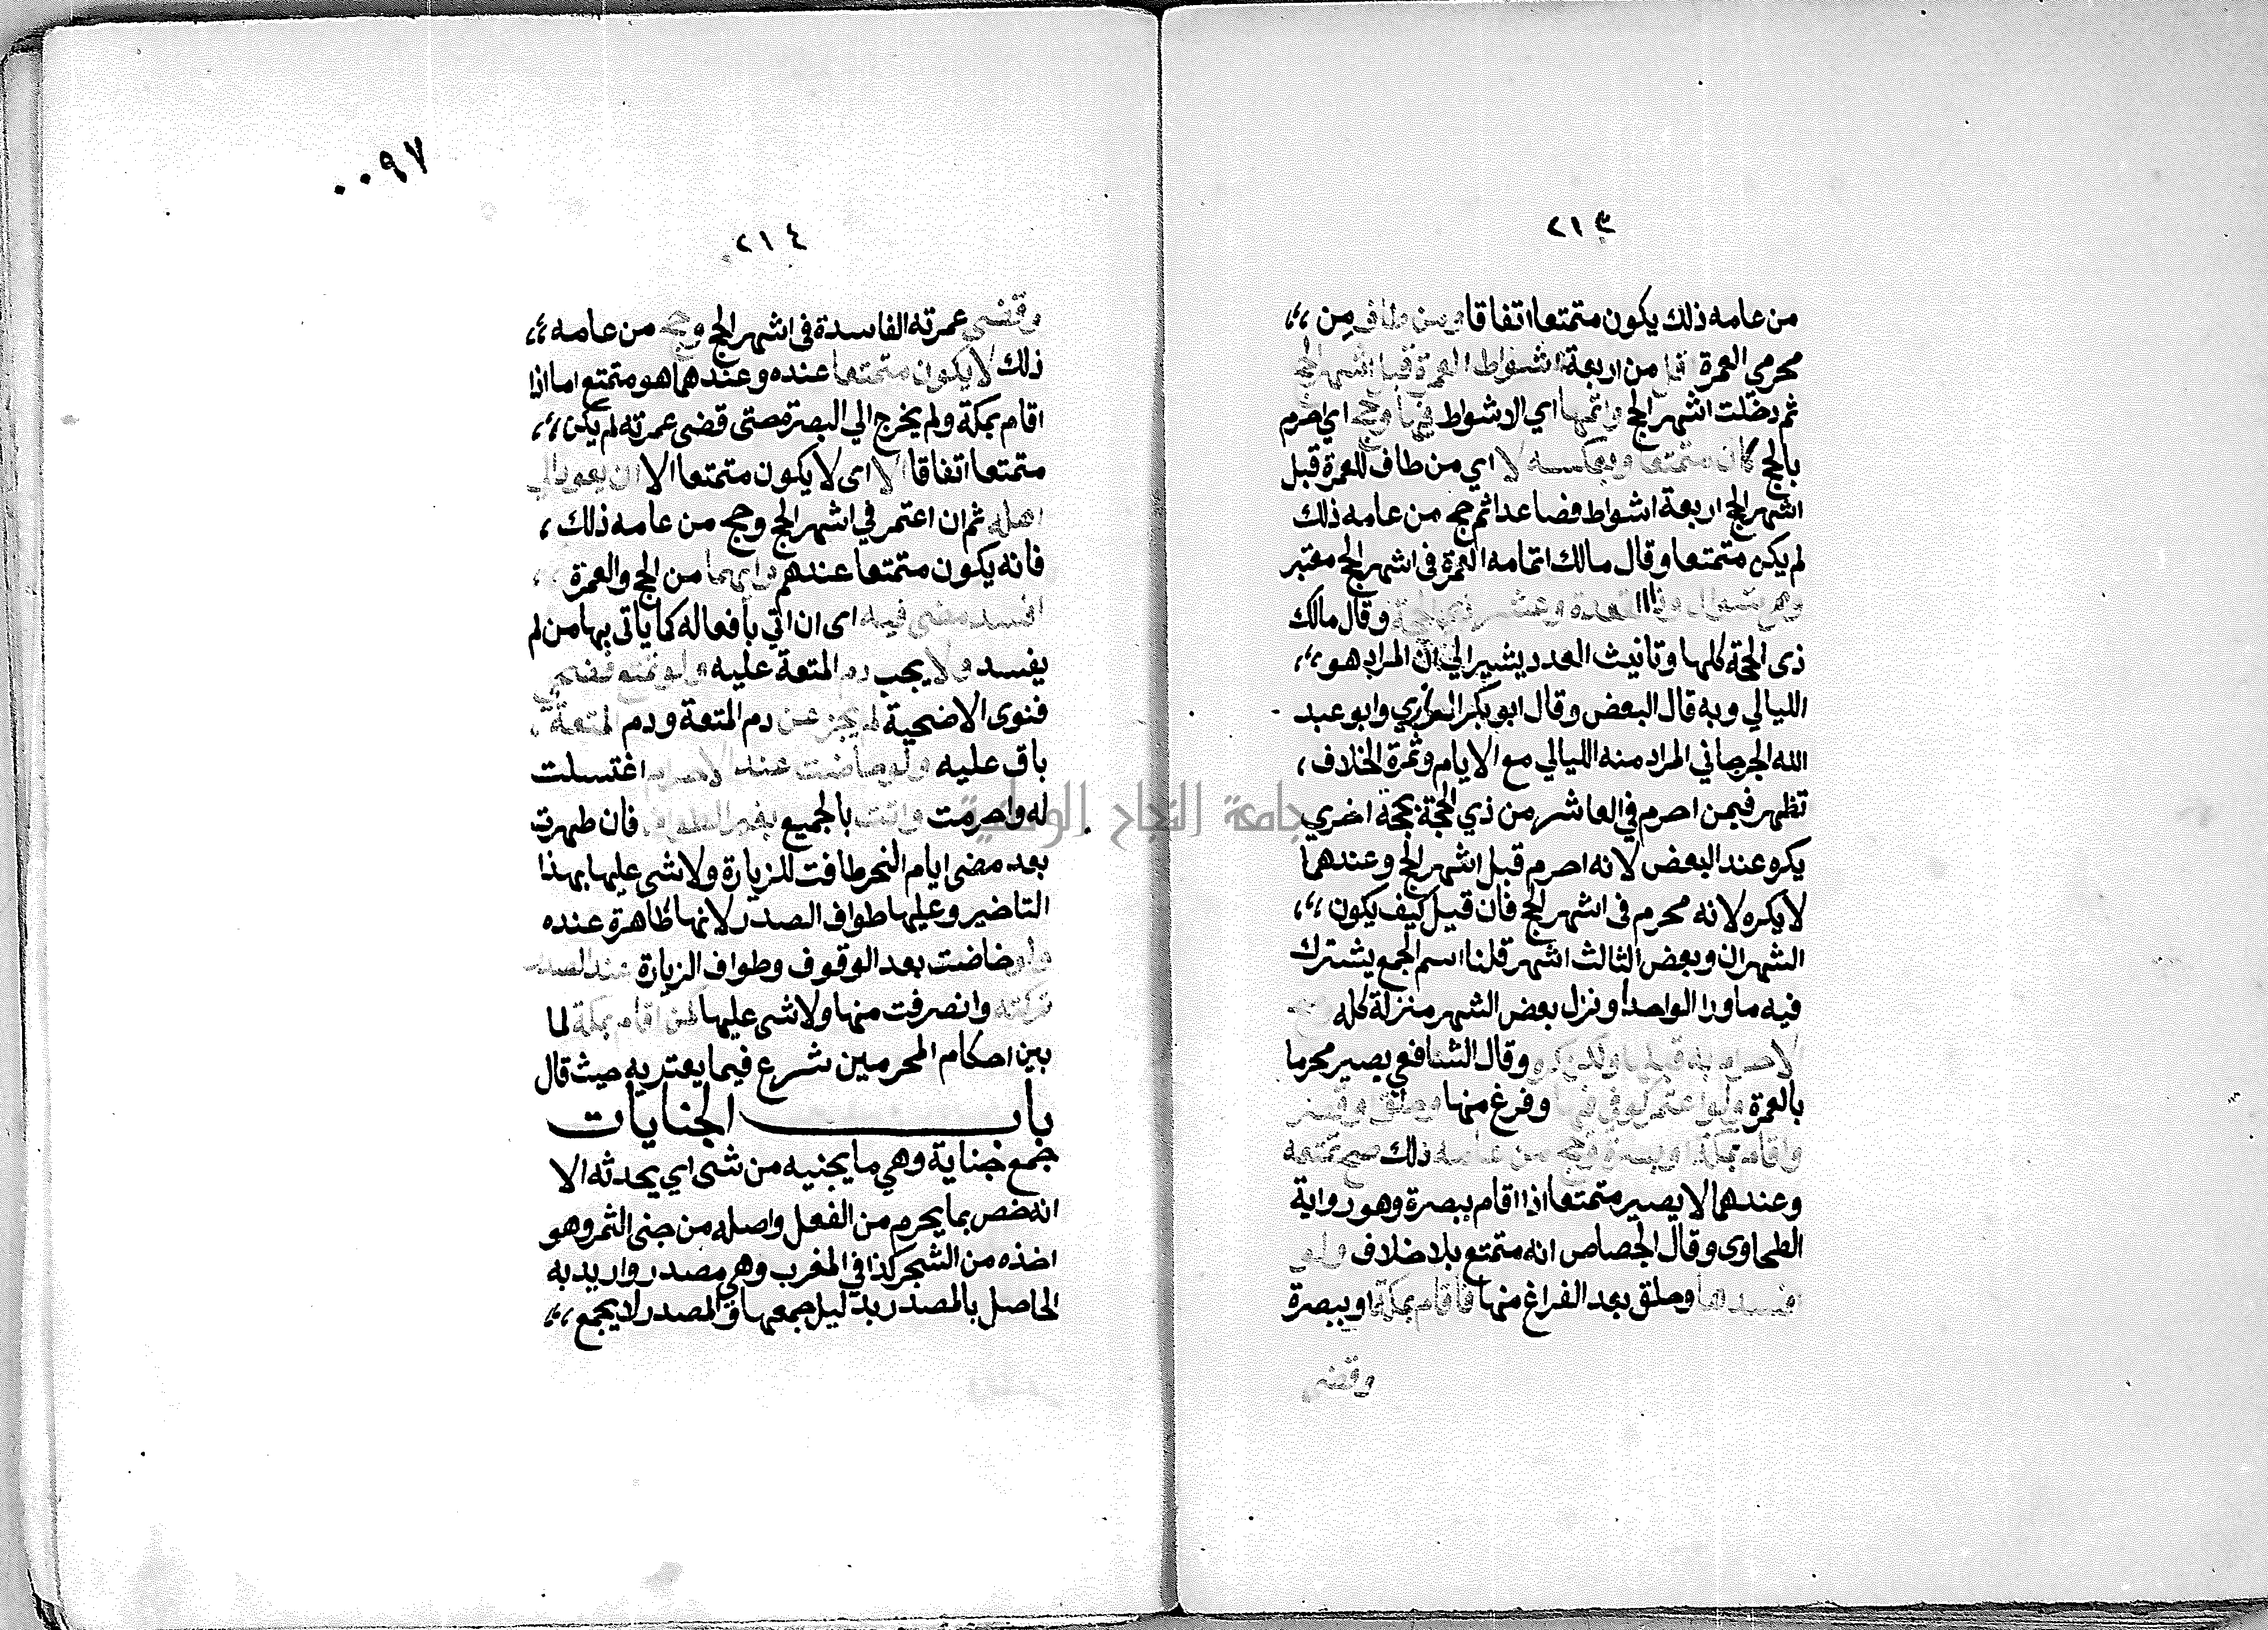 ٢١٣
من عامه ذلك يكون متمتعا اتفاقا ومن طاف من
محرمي العمرة اقل من اربعة اشواط العمرة قبل اشهر الحج
ثم دخلت اشهر الحج واتمها اي الاشواط فيها وحج اي احرم
بالحج كان متمتعا وبعكسه لا اي من طاف للعمرة قبل
اشهر الحج اربعة اشواط فصاعدا ثم حج من عامه ذلك
لم يكن متمتعا وقال مالك اتمامه العمرة في اشهر الحج معتبر
وهي شوال وذا القعدة وعشر ذي الحجة وقال مالك
ذى الحجة كلها وتانيث العدد يشير الي ان المراد هو
الليالي وبه قال البعض وقال ابو بكر الرازي وابو عبد
الله الجرجاني المراد منه الليالي مع الايام وثمرة الخلاف
تظهر فيمن احرم في العاشر من ذي الحجة بحجة اخري
يكره عند البعض لانه احرم قبل اشهر الحج وعندهما
لا يكره لانه محرم في اشهر الحج فان قيل كيف يكون
الشهران وبعض الثالث اشهر قلنا اسم الجمع يشترك
فيه ماورا الواحد ونزل بعض الشهر منزلة كله وصح
الاحرام به قبلها ولكن كره وقال الشافعي يصير محرما
بالعمرة ولو اعتمر كوفي فيها وفرغ منها وحلق وقصر
واقام بمكة او ببصرة وحج من عامه ذلك صح تمتعه
وعندهما لا يصير متمتعا اذا اقام ببصرة وهو رواية
الطحاوى وقال الجصاص انه متمتع بلا خلاف ولو
افسدها وحلق بعد الفراغ منها فاقام بمكة او ببصرة
وقضى
٠٠٩٧
٢١٤
وقضى عمرته الفاسدة في اشهر الحج وحج من عامه
ذلك لا يكون متمتعا عنده وعندهما هو متمتع اما اذا
اقام بمكة ولم يخرج الي البصرة حتى قضى عمرته لم يكن
متمتعا اتفاقا الا اى لا يكون متمتعا الا ان يعود الي
اهله ثم ان اعتمر في اشهر الحج وحج من عامه ذلك
فانه يكون متمتعا عندهم وايهما من الحج والعمرة
افسد مضى فيه اى ان اتي بأفعاله كما ياتى بها من لم
يفسد ولا يجب دم المتعة عليه ولو تمتع فضحي
فنوى الاضحية لم يجز عن دم المتعة ودم المتعة
باق عليه ولو حاضت عند الاحرام اغتسلت
له واحرمت واتت بالجميع بغير الطواف فان طهرت
بعد مضى ايام النحر طافت للزيارة ولا شى عليها بهذا
التاخير وعليها طواف الصدر لانها طاهرة عنده
ولو حاضت بعد الوقوف وطواف الزيارة عند الصدر
تركته وانصرفت منها ولا شى عليها كمن اقام بمكة لما
بين احكام المحرمين شرع فيما يعتريه حيث قال
باب الجنايات
جمع جناية وهي ما يجنيه من شى اي يحدثه الا
انه خص بما يحرم من الفعل واصله من جنى الثمر وهو
اخذه من الشجر كذا في المغرب وهي مصدر واريد به
الحاصل بالمصدر بدليل جمعها والمصدر لا يجمع
جامعة النجاح الوطنية